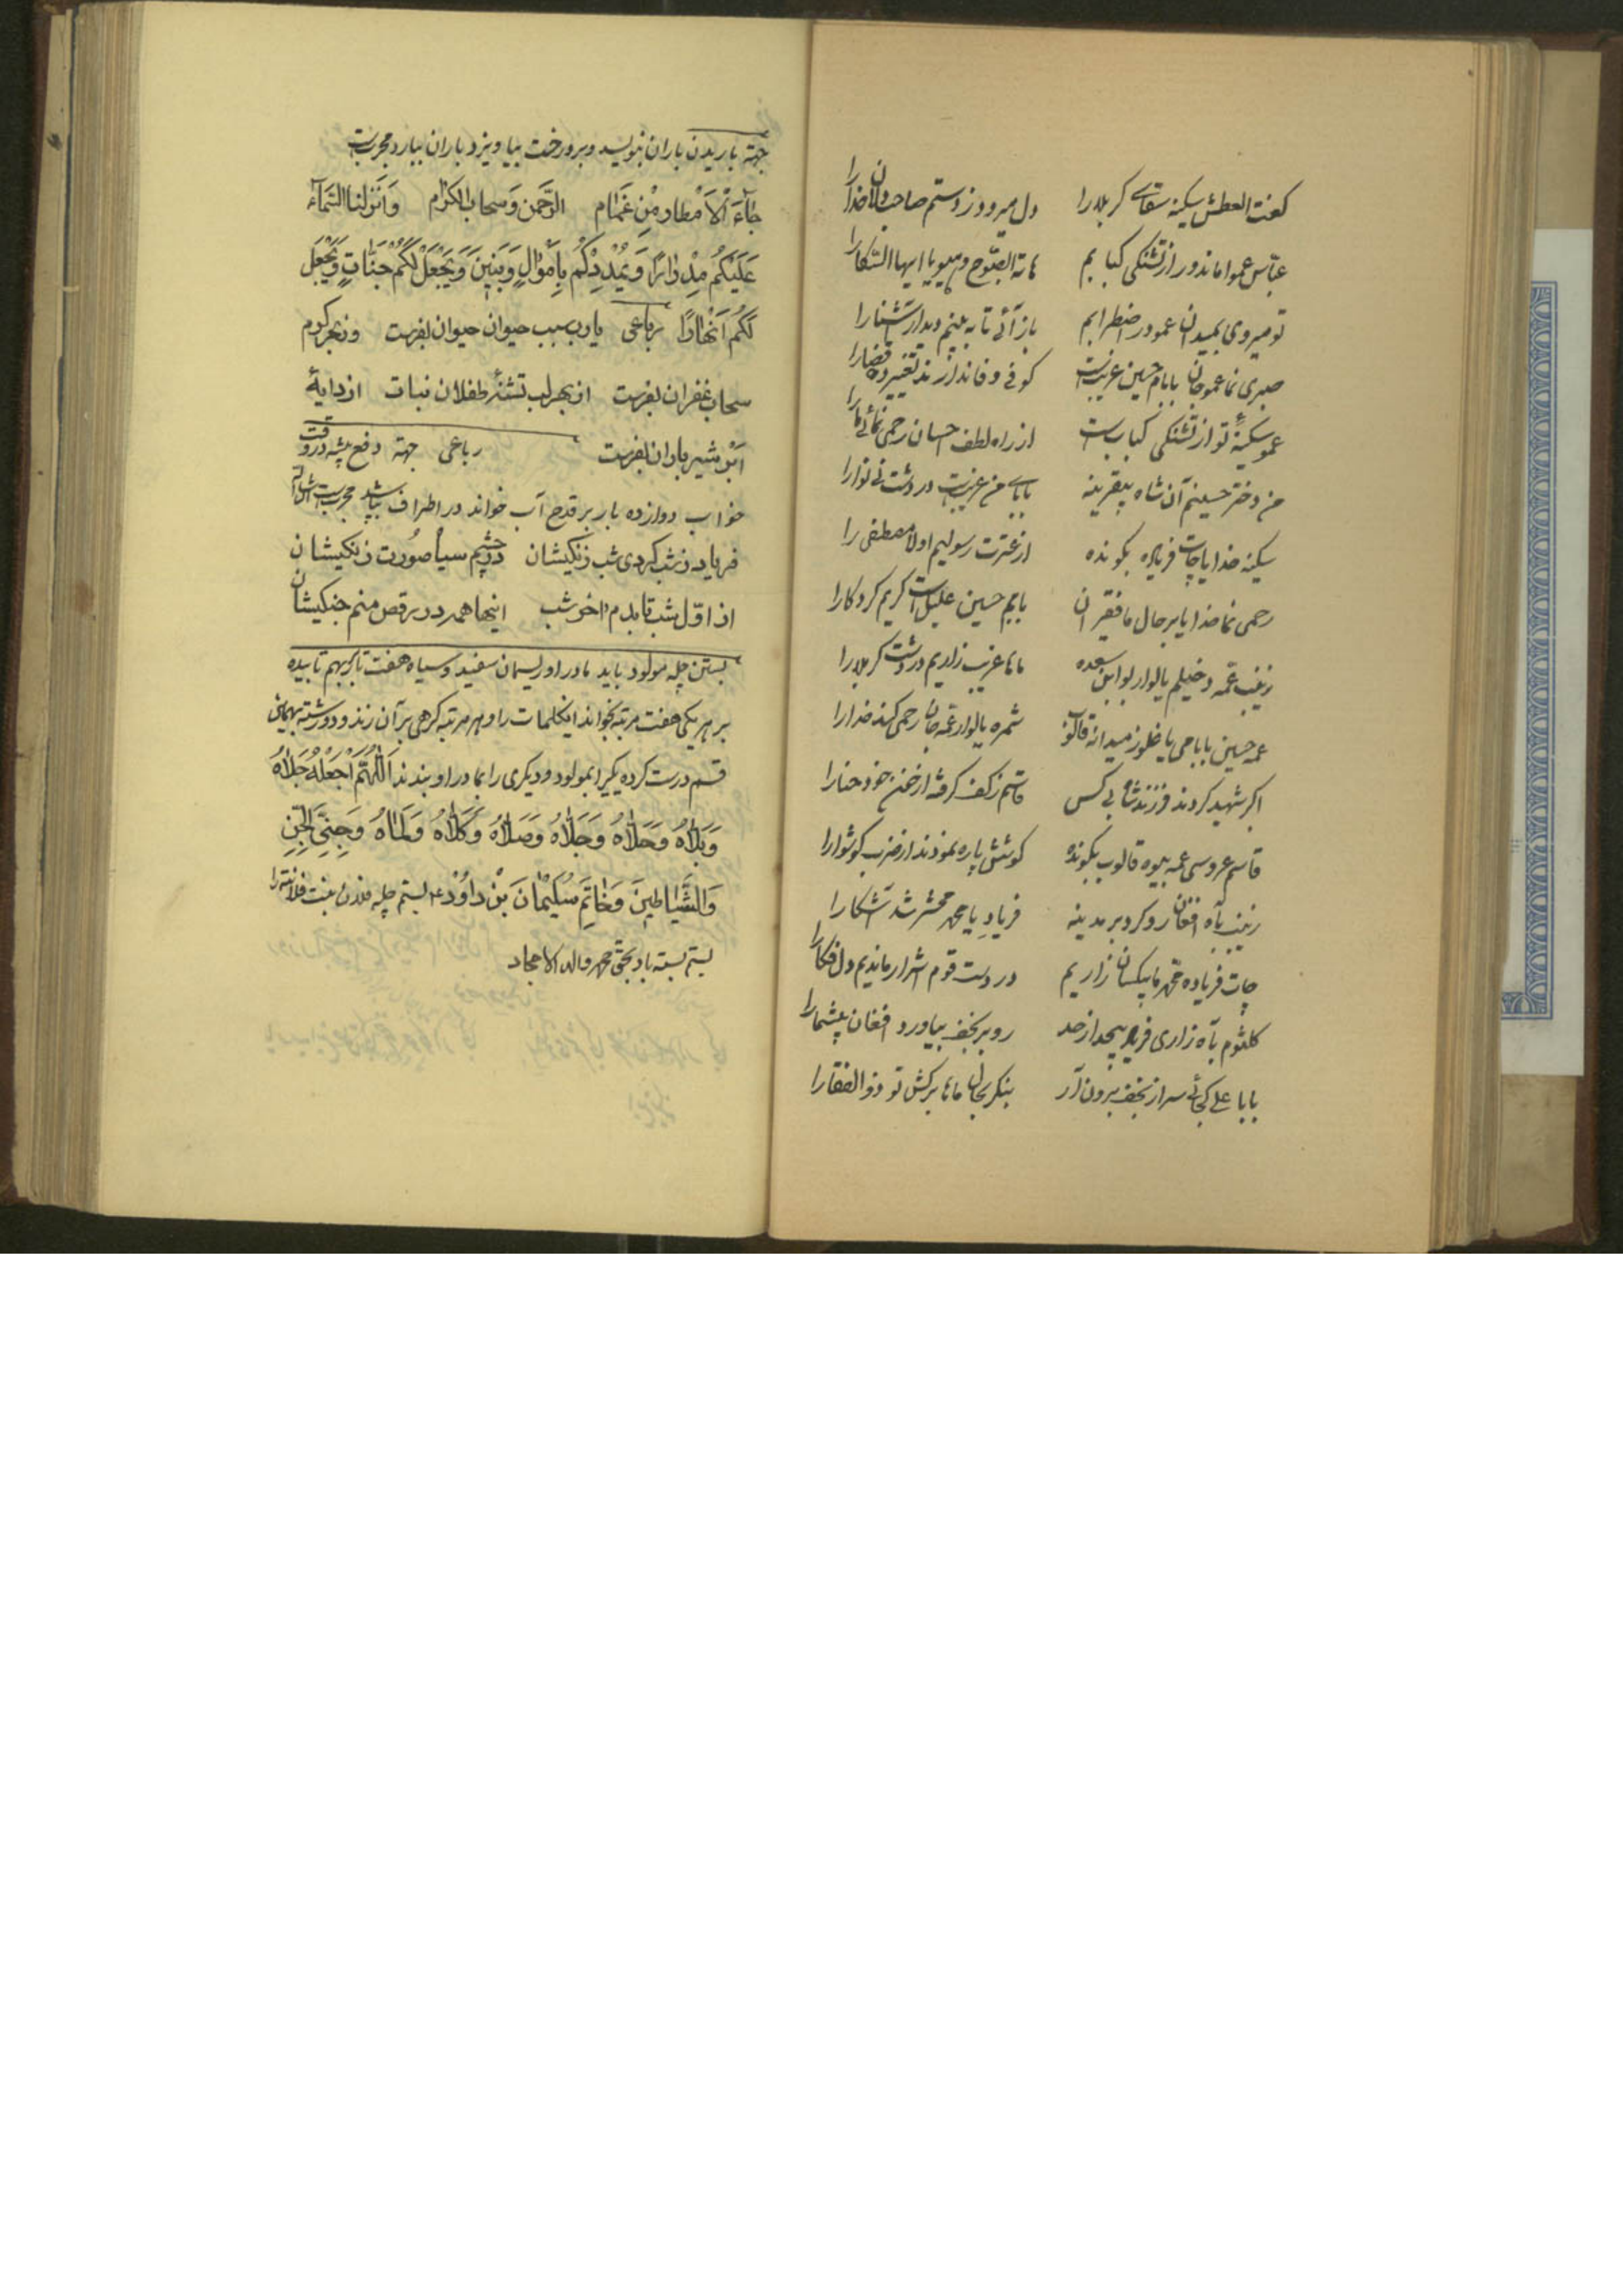 گفت العطش سکینه سقای کربلا را دل میرود ز دستم صاحبدلان خدا را
عباس عمو اماندور از تشنگی کبابم هات الصبوح یا ایها السکارا
تو میروی بمیدان عمو در اضطرابم باز آئی تا به بینم دیدار آشنا را
صبری نما عموجان بابام حسین غریبست کوفی وفا ندارند تغییر ده قضا را
عمو سکینهٔ تو از تشنگی کبابست از راه لطف احسان رحمی نمائی ما را
من دختر حسینم آن شاه بیقرینه بابای من غریبست در دشت نی نوا را
سکینه خدایا چات فریاده بگونده از عترت رسولیم اولاد مصطفی را
رحمی نما خدایا بر حال ما فقیران بابم حسین علیل است کریم کردگارا
زینب عمه دخیلم یالوار ماها غریب زاریم در دشت کربلا را
عمه حسین بابامی یاغلوز میدانه شمره یالوار عمه جان رحمی کند خدا را
اکبر شهید کردند فرزند شاه بی کس قاسم ز کف گرفته از خون خود حنا را
قاسم عروسی عمه بیوه قالوب بگونده گوشش پاره نمودند از ضرب گوشوارا
زینب بآه افغان رو کرد بر مدینه فریاد یا محمد محشر شد آشکارا
چات فریاده محمد ما بیکسان زاریم در دست قوم اشرار ماندیم دل فکارا
کلثوم بآه زاری فریاد بیحد از حد رو بر نجف بیاورد افغان
بابا علی کجائی سر از نجف برون آر بنگر بحال ماها برکش تو ذوالفقارا
جهة باریدن باران بنویسد و بر درخت بیاویزد باران ببارد مجربست
جٰآءَ اْلاَمْطار مِنْ غَمٰام الرَّحْمن وَسحاب الکرٰام وَاَنْزلنا السَّمآءَ
عَلَیْکُم مِدْرٰارًا وَیُمْدِدْکُم بِاَمْوٰالٍ وَبَنینَ وَیَجْعَلْ لَکُمْ جَنّٰاتٍ وَیَجْعَل
لَکُمْ اَنْهٰارًا رباعی یارب سبب حیوان حیوان بفرست وز بحر کرم
سحاب غفران بفرست از بهر لب تشنهٔ طفلان نبات از دایهٔ
ابر شیر باران بفرست رباعی جهة دفع پشه در وقت
خواب دوازده بار بر قدح آب خواند در اطراف بپاشد مجربست
فریاد ز شب کردی شب زنگیشان در چشم سیاٰ صورت زنگیشان
از اوّل شب تا بدم اخر شب اینها همه در رقص منم جنگیشان
بستن چله مولود باید مادر او ریسمان سفید و سیاه هفت تا بهم تابیده
بر هر یکی هفت مرتبه بخواند اینکلمات را و هر مرتبه گرهی بر آن زند و دو رشته بهمان
قسم درست کرده یکیرا بمولود و دیگری را بمادر او بندند اَللّٰهُمَّ اجْعَلْهُ جَلاٰهُ
وَبَلاٰهُ وَحَلاٰهُ وَجَلاٰهُ وَصَلاٰهُ وَکَلاٰهُ وَلَمٰاهُ وَجِنّیِ الْجِنِّ
وَالشَّیٰاطینَ وَخٰاتَمِ سُلَیْمٰانَ بْنِ دٰاوُدَ بستم چله فلان بنت فلانته را
بستم بسته باد بحق محمد واله الامجاد